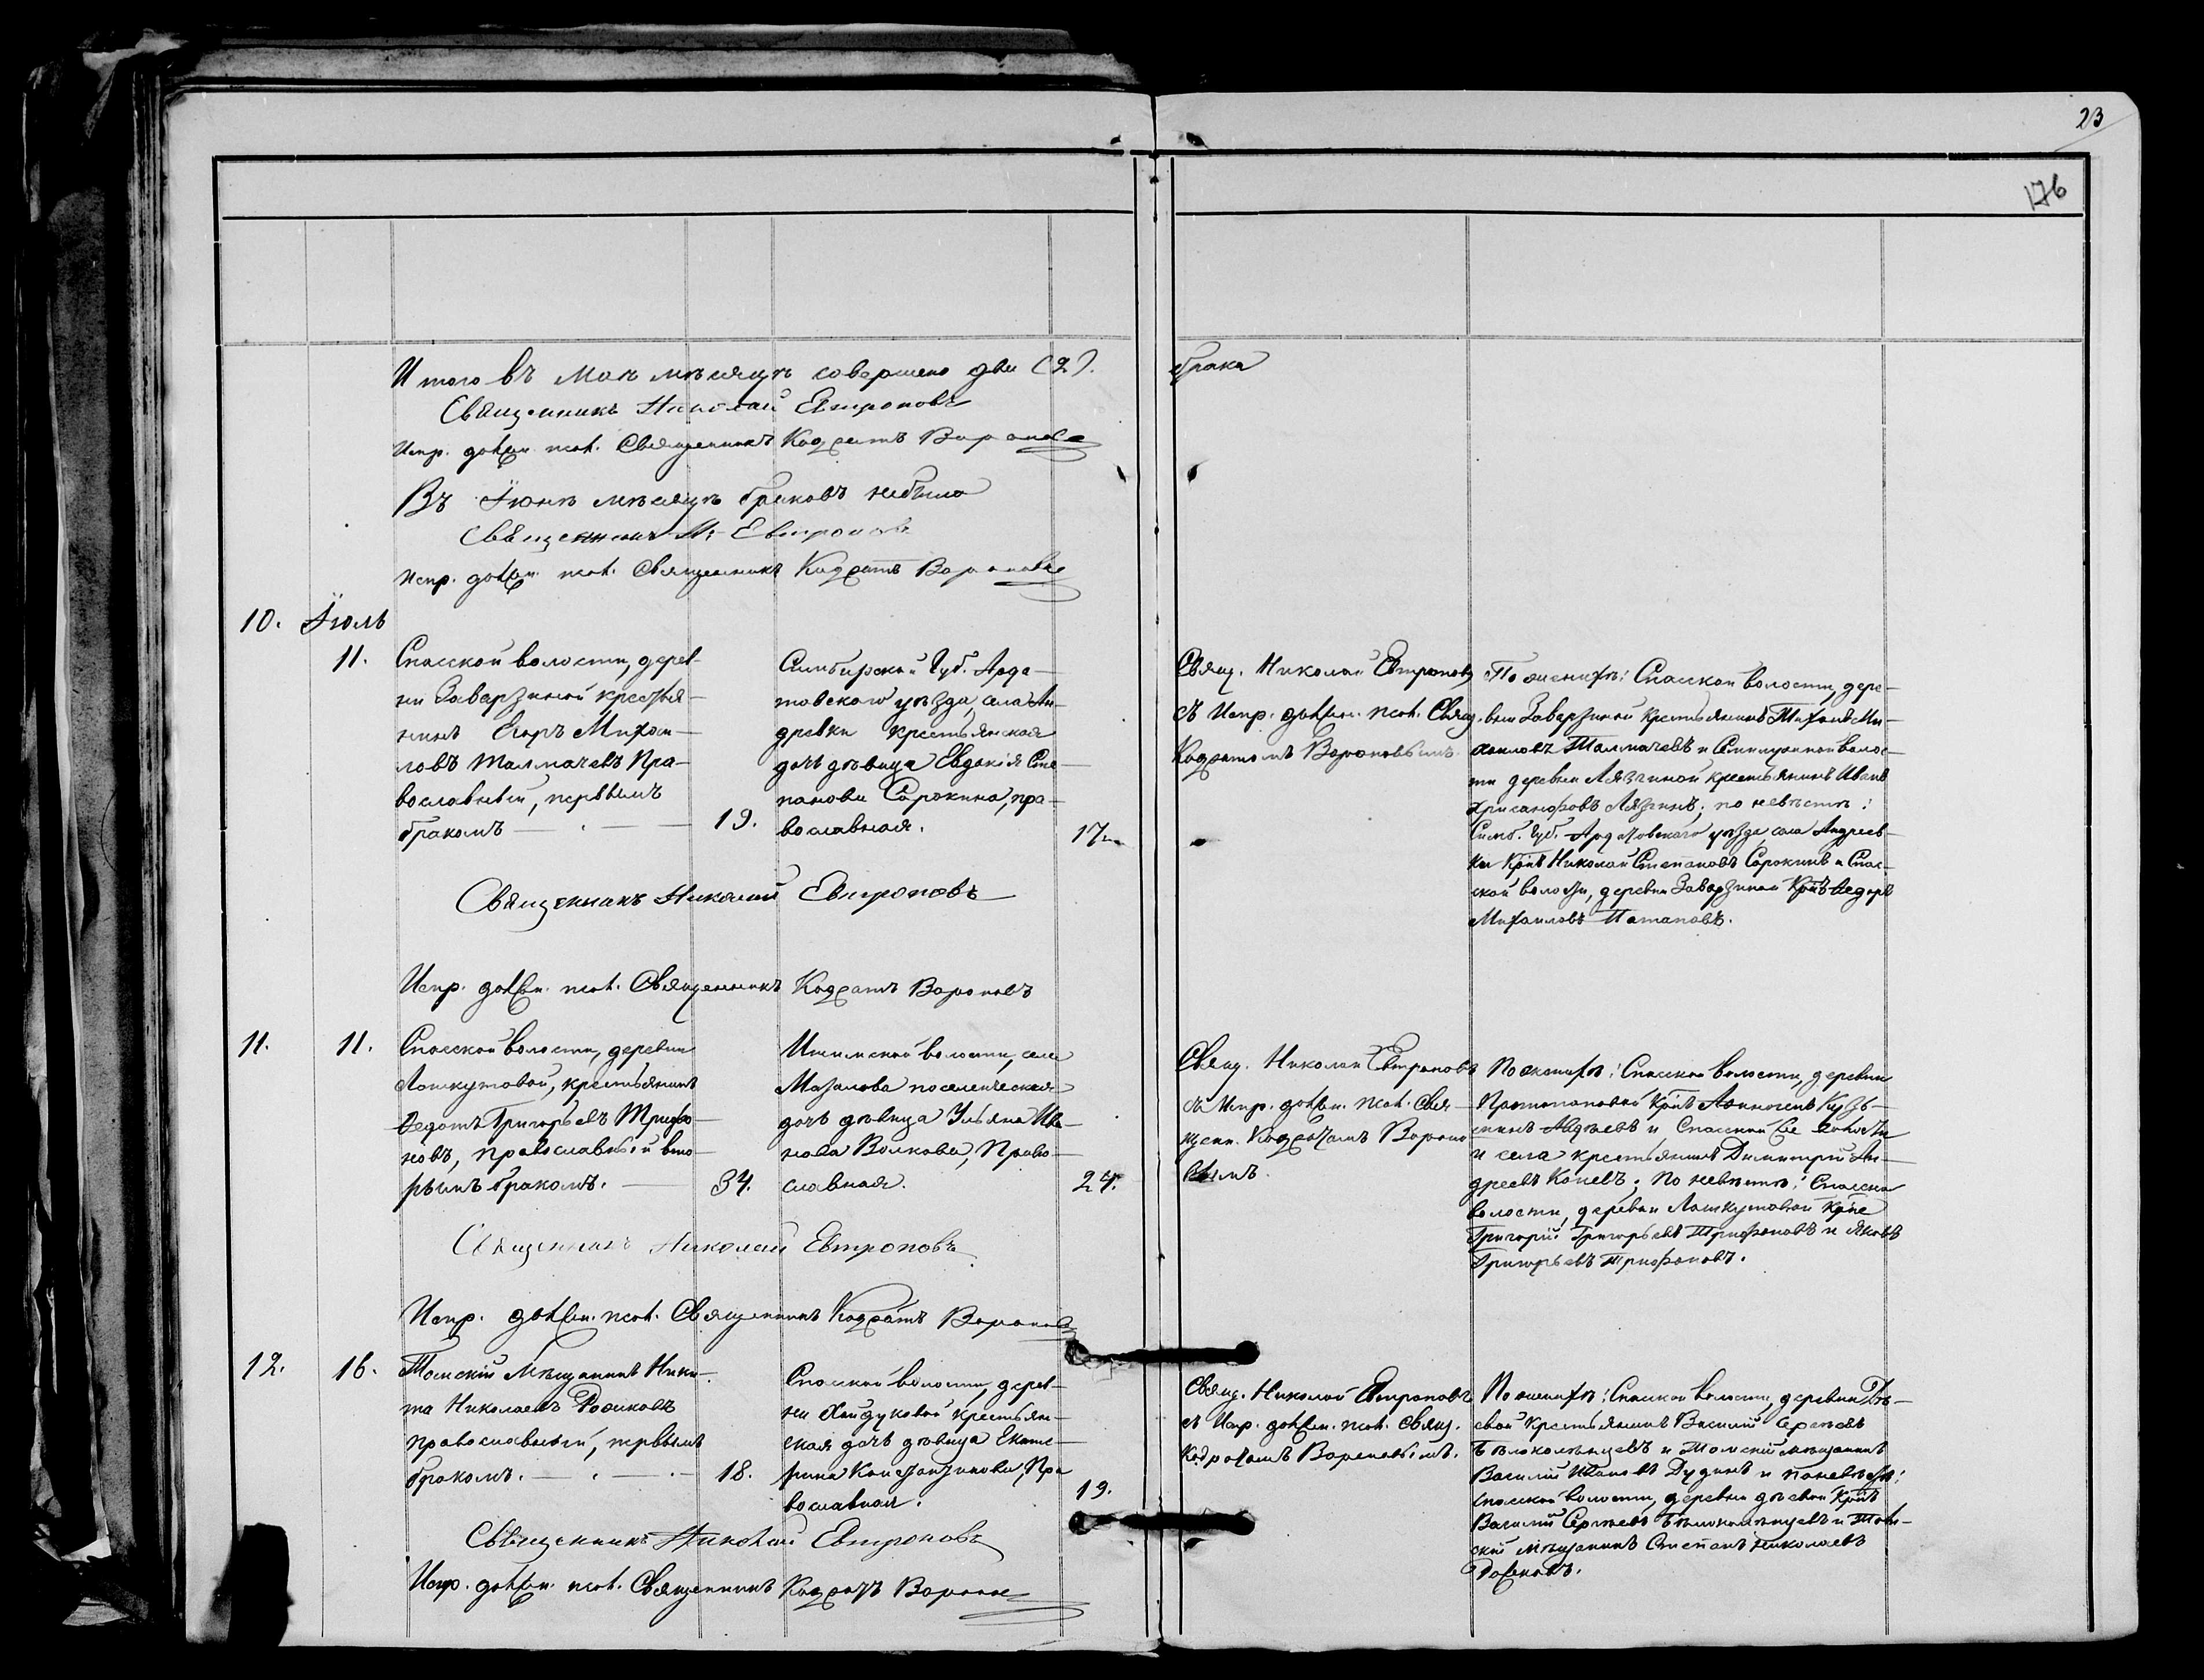 23
176
Итого въ маѣ мѣсяцѣ совершено два (2).
брака
Священникъ Николай Евтроповъ
Испр. долж. псал. Священникъ Кодратъ Вороновъ
Въ Іюнѣ мѣсяцѣ браковъ небыло
Священникъ Н. Евтроповъ
Испр. долж. псал. Священникъ Кодратъ Вороновъ
10. Іюль
11.
Спасской волости, дерев-
ни Заварзиной крестья-
нинъ Егоръ Михаи-
ловъ Толмачевъ Пра-
вославный, первымъ
бракомъ
19.
Симбирской Губ. Арда-
товскаго уѣзда, села Ан-
древки крестьянская
дочь дѣвица Евдокія Сте-
панова Сорокина, пра-
вославная.
17.
Свящ. Николай Евтроповъ
съ Испр. долж. псал. Свящ.
Кодратомъ Вороновымъ.
По женихѣ: Спасской волости, дере-
вни Заварзиной крестьянинъ Ми-
хаиловъ Толмачевъ и волос-
ти деревни крестьянинъ Иванъ
Хрисанфовъ по невѣстѣ:
Симб. Губ. Ардатовскаго уѣзда, села Андреев-
ки Кр-нъ Николай Степановъ Сорокинъ и Спас-
ской волости, деревни Заварзиной Кр-нъ Ѳедоръ
Михаиловъ Потаповъ.
Священникъ Николай Евтроповъ
Испр. долж. псал. Священникъ Кодратъ Вороновъ
11.
11.
Спасской волости, деревни
Лоскутовой, крестьянинъ
Ѳедотъ Григорьевъ Трифо-
новъ, православный вто-
рымъ бракомъ.
34.
Ишимской волости, села
Мазалова поселенческая
дочь дѣвица Ульяна Ива-
нова Волкова, Право-
славная.
24.
Свящ. Николай Евтроповъ
съ Испр. долж. псал. Свя-
щенн. Кодратомъ Вороно-
вымъ.
По женихѣ: Спасской волости, деревни
Протопоповой Кр-нъ Кузь-
минъ Авдѣевъ и Спасской волости
и села крестьянинъ Димитрій Ан-
дреевъ Коневъ; По невѣстѣ: Спасской
волости, деревни Лоскутовой Кр-не
Григорій Григорьевъ Трифоновъ и Яковъ
Григорьевъ Трифоновъ.
Священникъ Николай Евтроповъ
Испр. долж. псал. Священникъ Кодратъ Вороновъ
12.
16.
Томскій Мѣщанинъ Ники-
та Николаевъ
православный, первымъ
бракомъ.
18.
Спасской волости, дерев-
ни Хайдуковой крестьян-
ская дочь дѣвица Екате-
рина Константинова, Пра
вославная.
19.
Свящ. Николай Евтроповъ
съ Испр. долж. псал. Свящ.
Кодратомъ Вороновымъ.
По женихѣ: Спасской волости, деревни Дѣ-
евой Крестьянинъ Василій Сергѣевъ
Бѣлоколытцевъ и Томскій мѣщанинъ
Василій Ивановъ Дудинъ и по невѣстѣ:
Спасской волости, деревни Дѣевой Кр-нъ
Василій Сергѣевъ Бѣлоколытцевъ и Том-
скій мѣщанинъ Степанъ Николаевъ
Священникъ Николай Евтроповъ
Испр. долж. псал. Священникъ Кодратъ Вороновъ